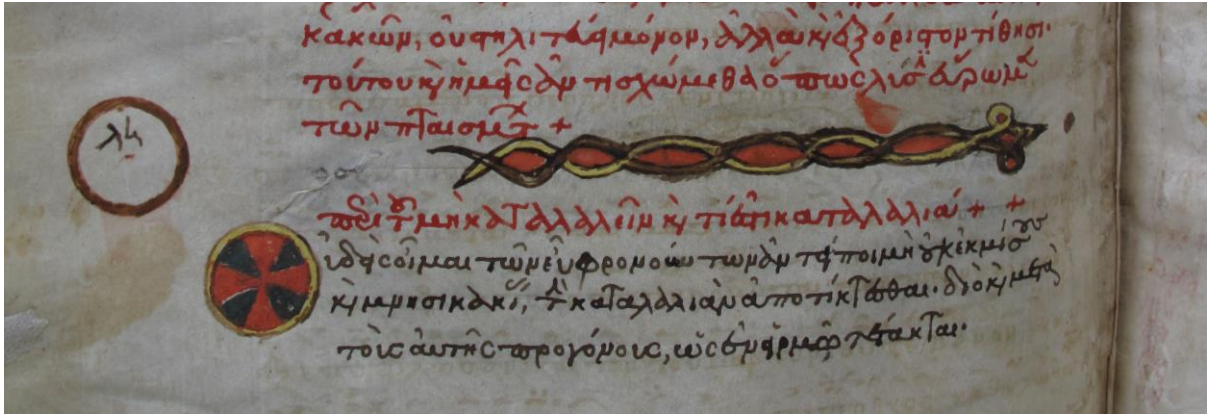 κακῶν, οὐ μόνον, ἀλλὰ κ ἐξόριστον τίθησι·
τούτου κ ἡμεῖς ἀντισχώμεθα ὅπως λύσ εὕρωμ
τῶν πταισμτ +
περὶ τοῦ μὴ καταλαλεῖν κ τί ἐστι καταλαλιά + +
οὐδεὶς οἶμαι τῶν εὖ φρονούντων ἀντείποι μὴ οὐκ ἐκ μίσους
κ μνησικακίας, τὴν καταλαλιὰν ἀποτίκτεσθαι· διὸ κ μετὰ
τοῖς αὐτῆς προγόνοις, ὡς ἐν εἱρμῷ τέτακται·